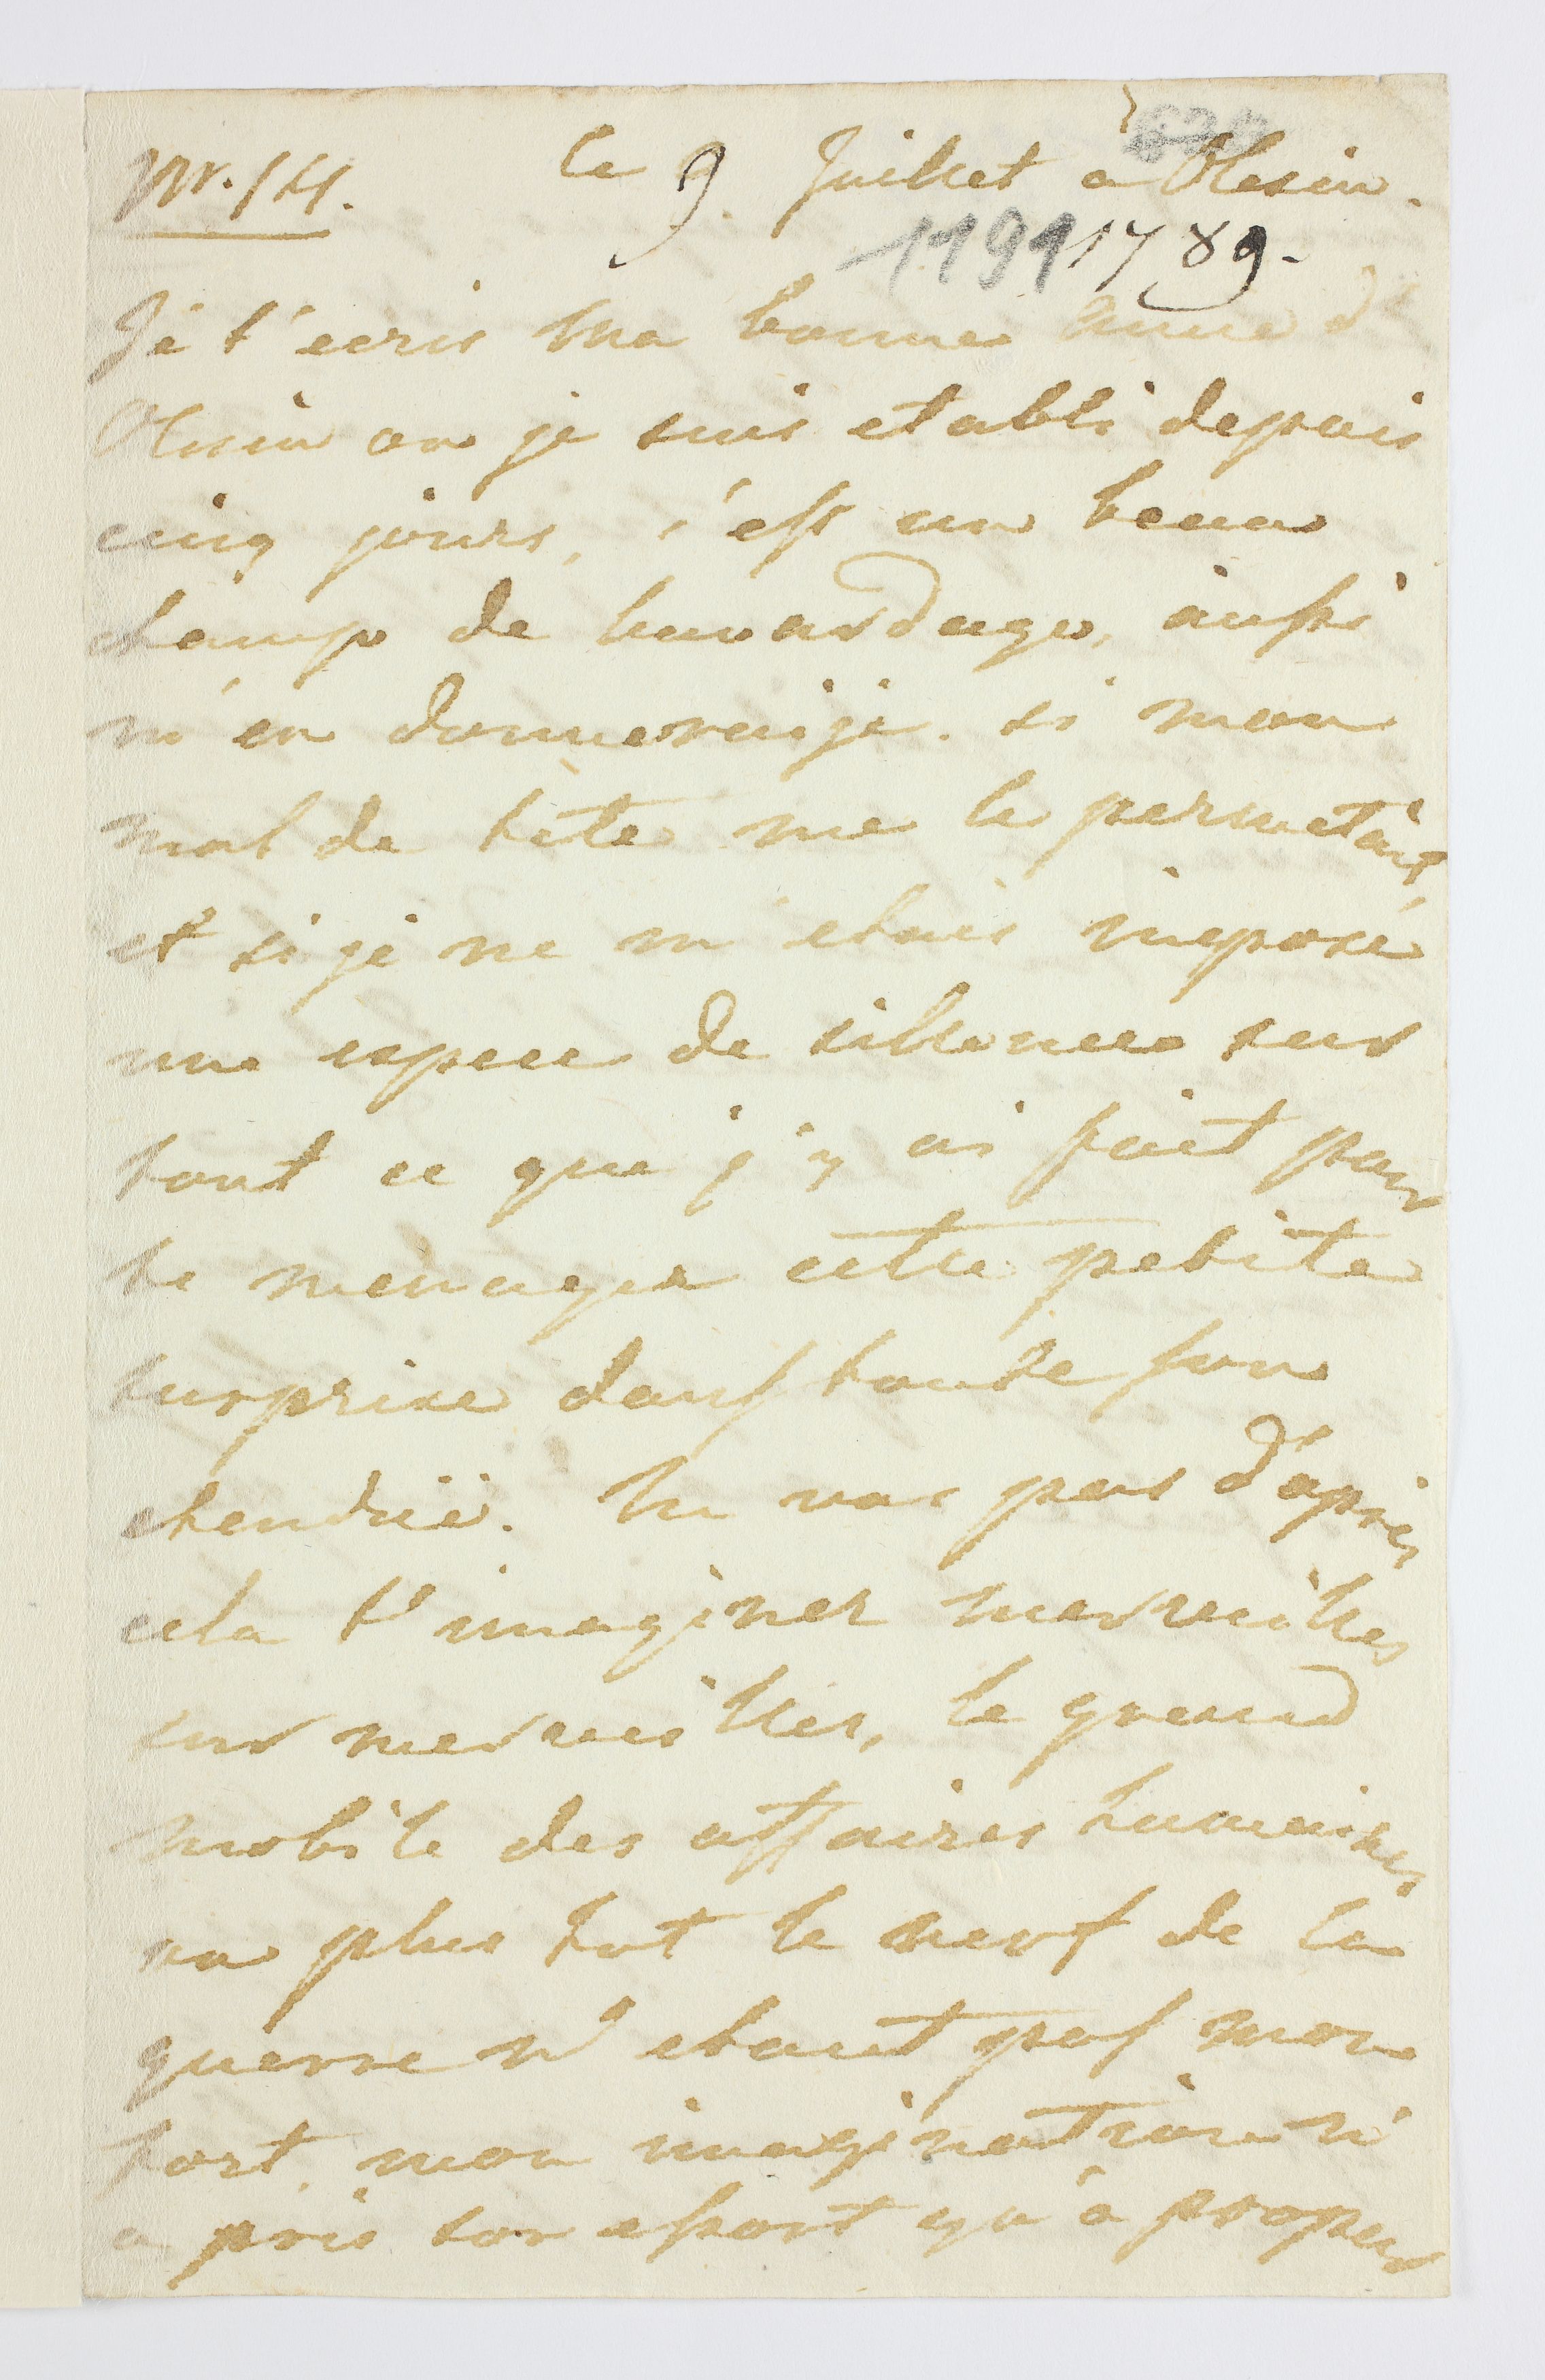 Nr. 14. le 9. Juillet a Olesin.
1191 1789.
Je t'ecris ma bonne amie d'
Olesin ou je suis etabli depuis
cinq jours, c'est un beau
champ de bavardage, aussi
m'en donneraije. si mon
mal de tete me le permetait,
et si je ne m'etais imposé
une espece de sillence sur
tout ce que j'y ai fait pour
te menager cette petite
surprise dans toute son
etenduë. Tu vas pas d'après
cela t'imaginer merveilles
sur merveilles, le grand
mobile des affaires humaines,
ou plus tot le nerf de la
guerre n'etant pas mon
fort, mon imagination n'
a pris son essort qu'a propos